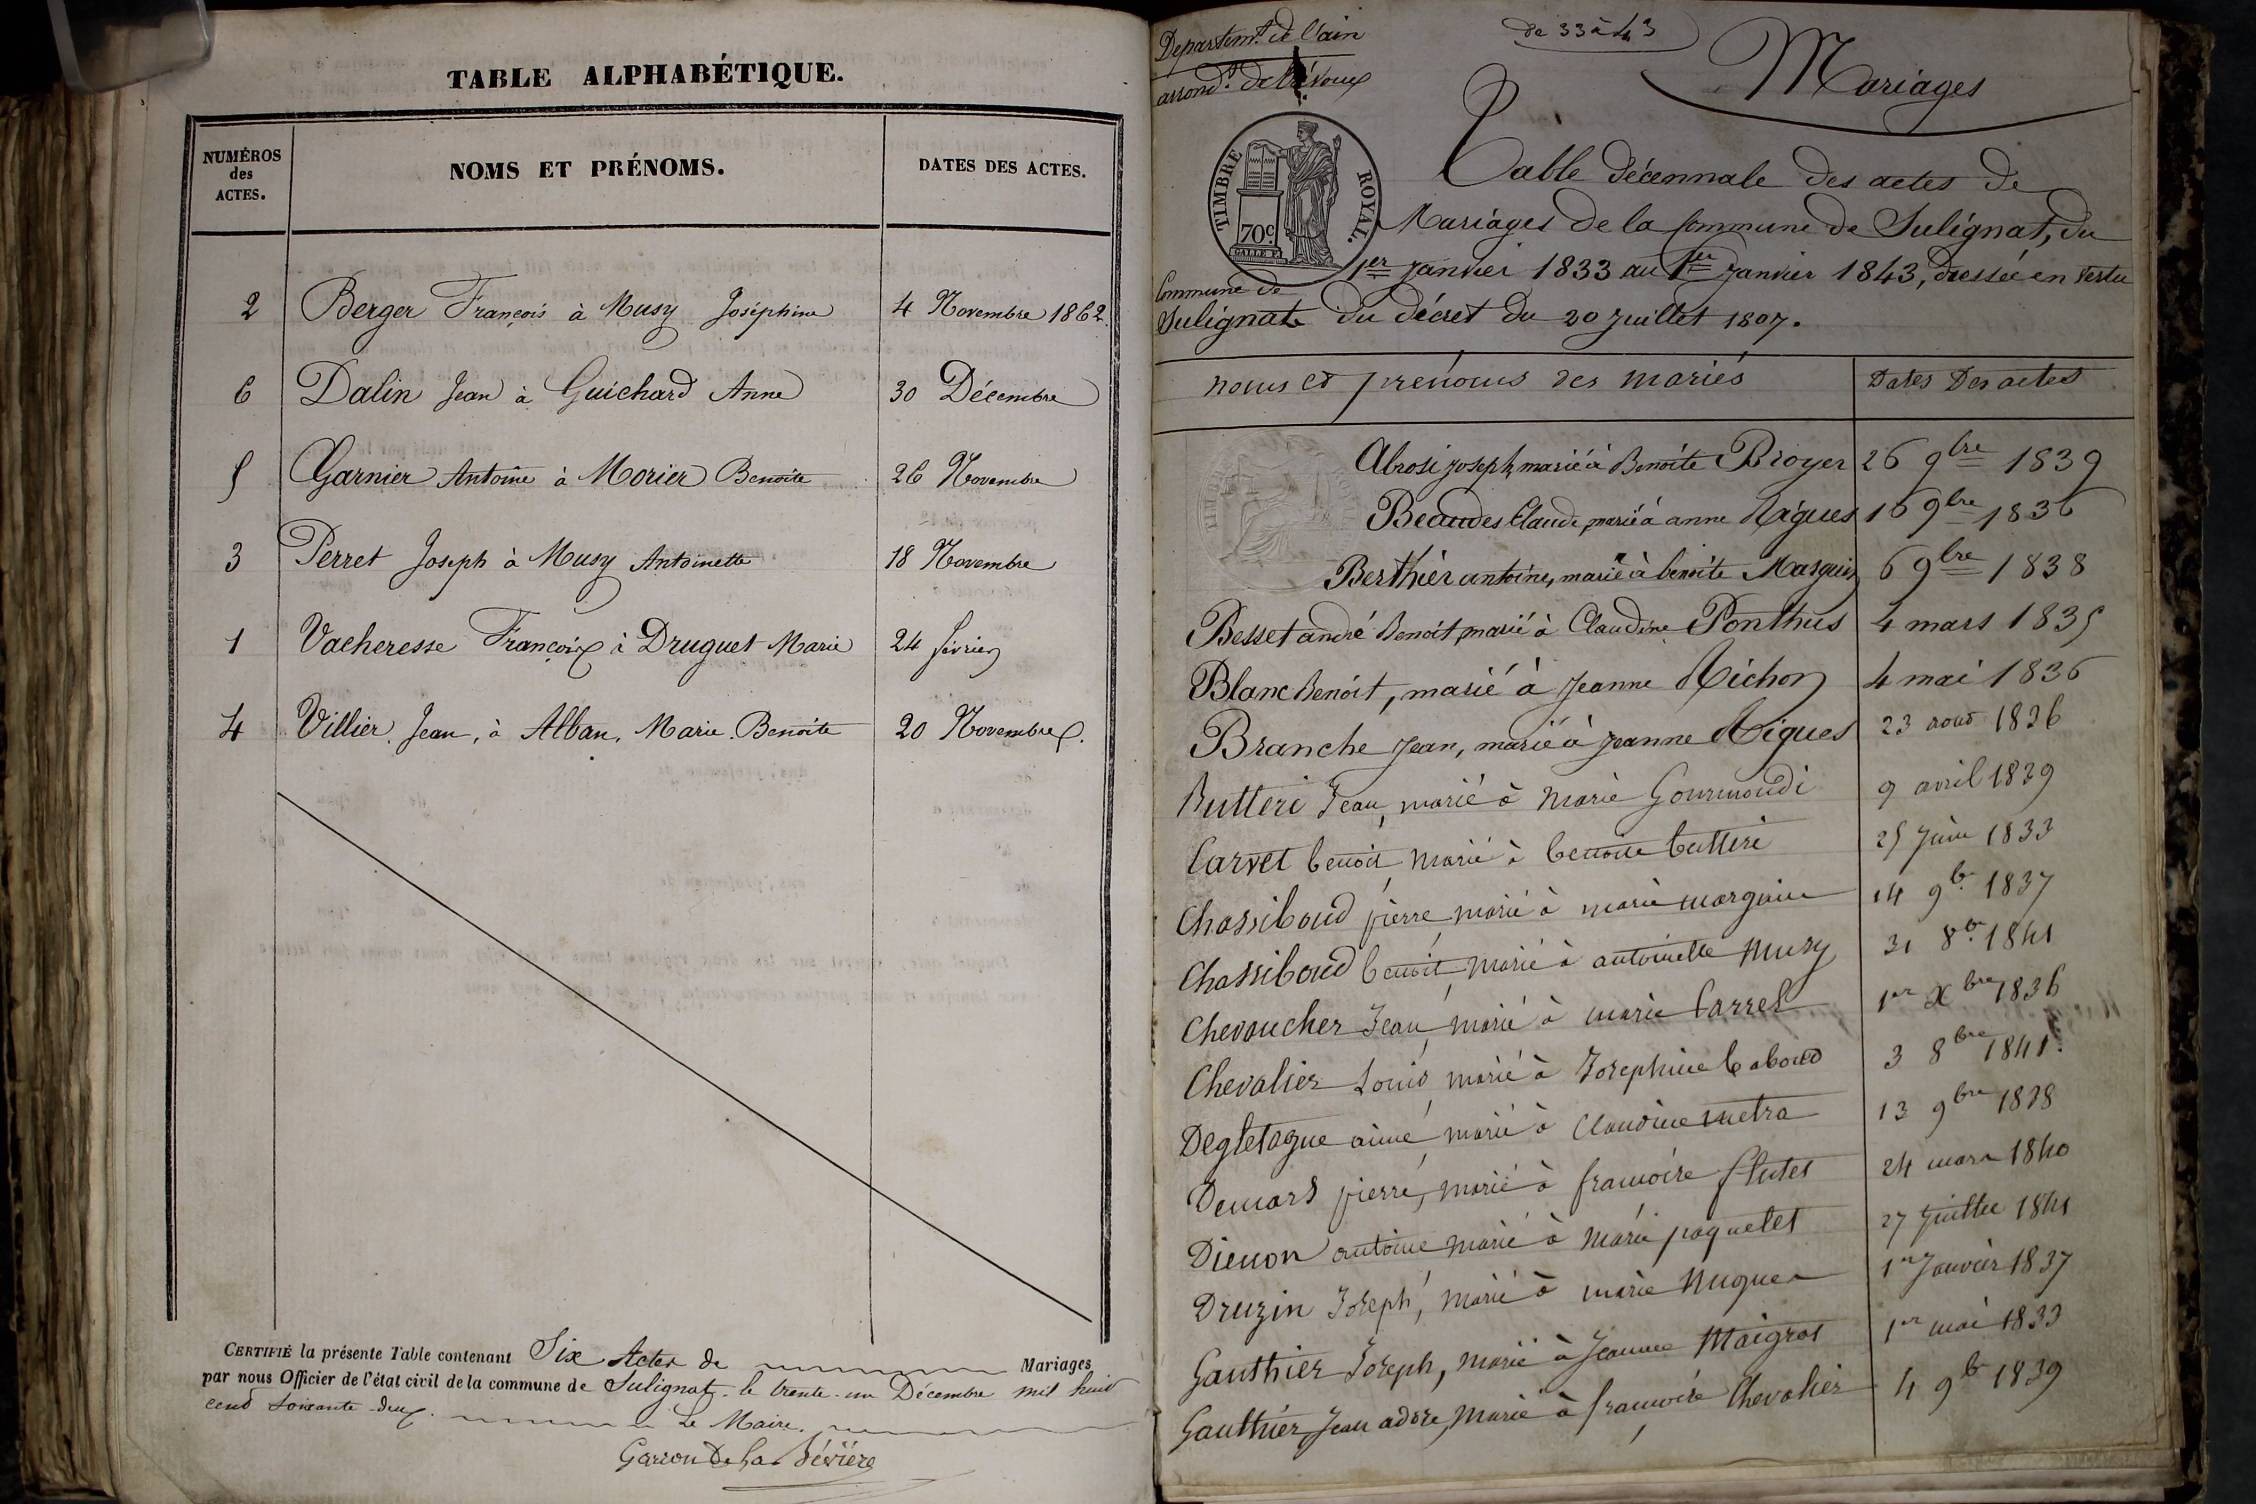 TABLE ALPHABÉTIQUE.
NUMÉROS des ACTES.
NOMS ET PRÉNOMS.
DATES DES ACTES.
2 Berger François à Musy Joséphine 4 Novembre 1862.
6 Dalin Jean à Guichard Anne 30 Décembre
5 Garnier Antoine à Morier Benoite 26 Novembre
3 Perret Joseph à Musy Antoinette 18 Novembre
1 Vacheresse François à Druguet Marie 24 février
4 Villier, Jean, à Alban, Marie Benoite 20 Novembre.
CERTIFIÉ la présente Table contenant Six Actes de Mariages
par nous Officier de l'état civil de la commune de Sulignat le trente-un Décembre mil huit
cent soixante-deux. Le Maire,
Garron De La Bévière
Departemt. de l'ain
arrondt. de Trévoux
de 33 à 43
Mariages
TIMBRE ROYAL.
70c.
Table décennale des actes de
Mariages de la Commune de Sulignat, du
1er Janvier 1833 au 1er Janvier 1843, dressée en vertu
Commune de
Sulignat
du décret du 20 Juillet 1807.
noms et prénoms des mariés Dates Des actes
Abrosi joseph, marié à Benoite Broyer 26 9bre 1839
Beaudes Claude, marié à anne Rigues 16 9bre 1836
Berthier antoine, marié à benoite Masquin 6 9bre 1838
Besset andré Benoit, marié à Claudine Ponthus 4 mars 1835
Blanc Benoit, marié à Jeanne Richon 4 mai 1836
Branche Jean, marié à Jeanne Rigues 23 aout 1836
Butteri Jean, marié à Marie Gourmondi 9 avril 1839
Carvet benoit, marié à benoite butteri 25 Juin 1833
Chassiboud pierre, marié à marie marguin 14 9b. 1837
Chassiboud benoit, marié à antoinette Musy 31 8b. 1841
Chevaucher Jean, marié à marie Carrel 1er Xbre 1836
Chevalier Louis, marié à Josephine Caboud 3 8bre 1841.
Degletagne aimé, marié à Claudine metra 13 9bre 1838
Demars pierre, marié à francoise flutet 24 mars 1840
Dienon antoine marié à Marie paquelet 27 Juillet 1841
Druzin Joseph, marié à marie Nugues 1er Janvier 1837
Gauthier Joseph, marié à Jeanne Maigrot 1er mai 1833
Gauthier, Jean adore, Marié à francoise Chevalier 4 9b 1839